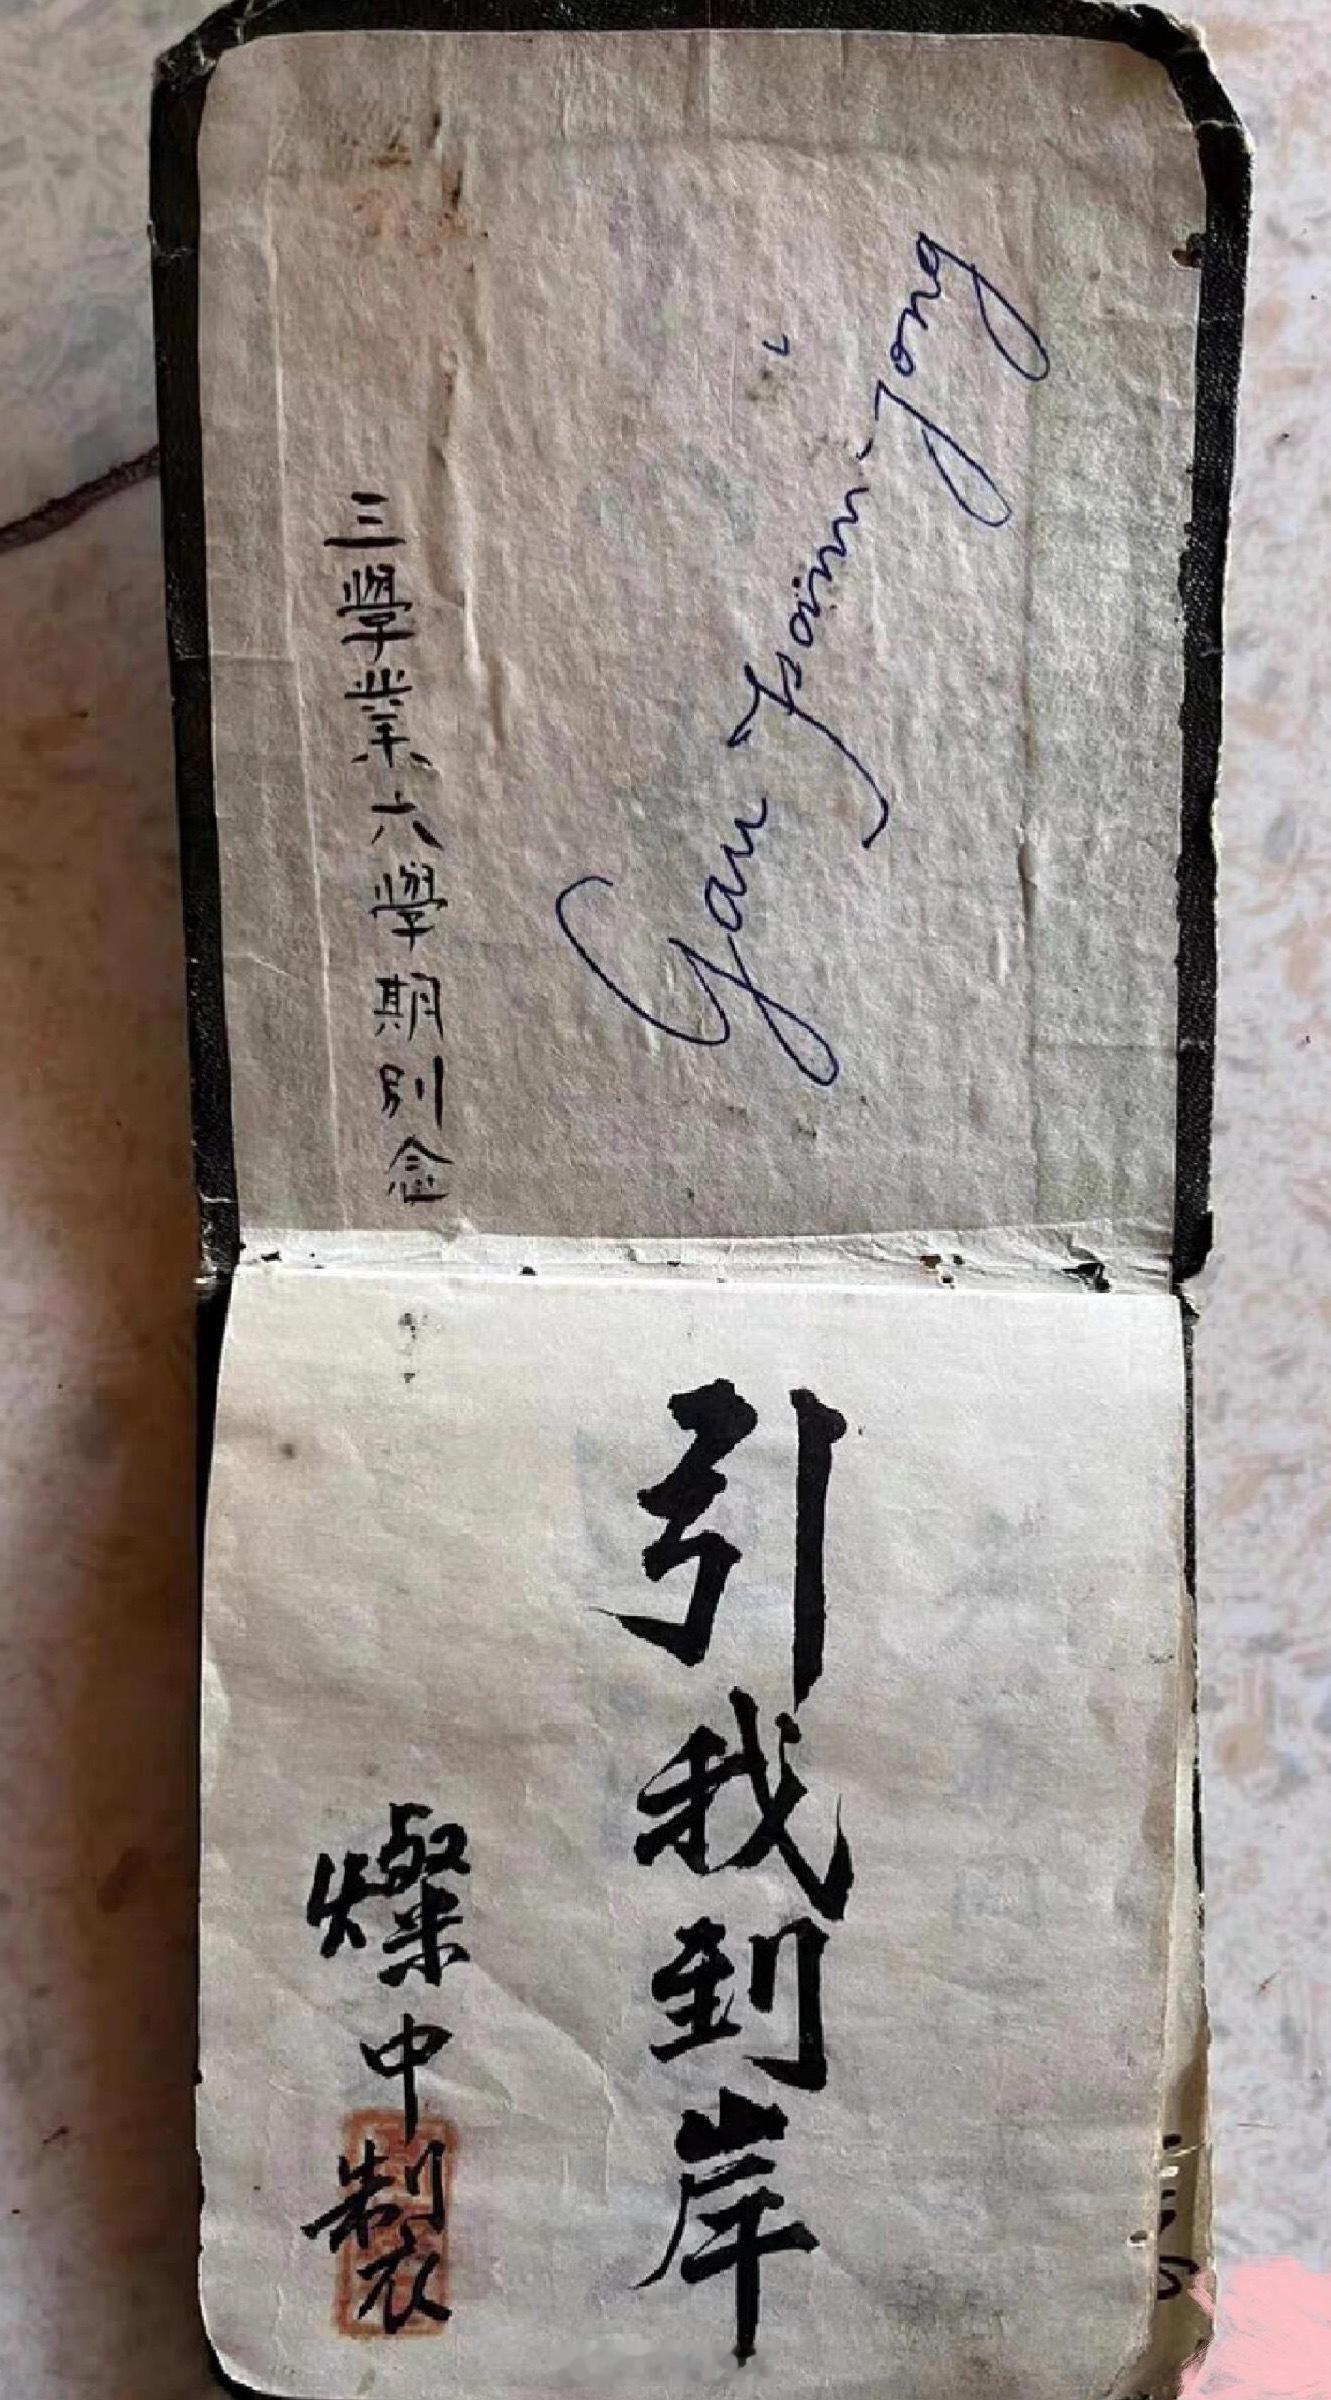 三學業六學期別念
Gan Tsann Jong
引我到岸
燦中製